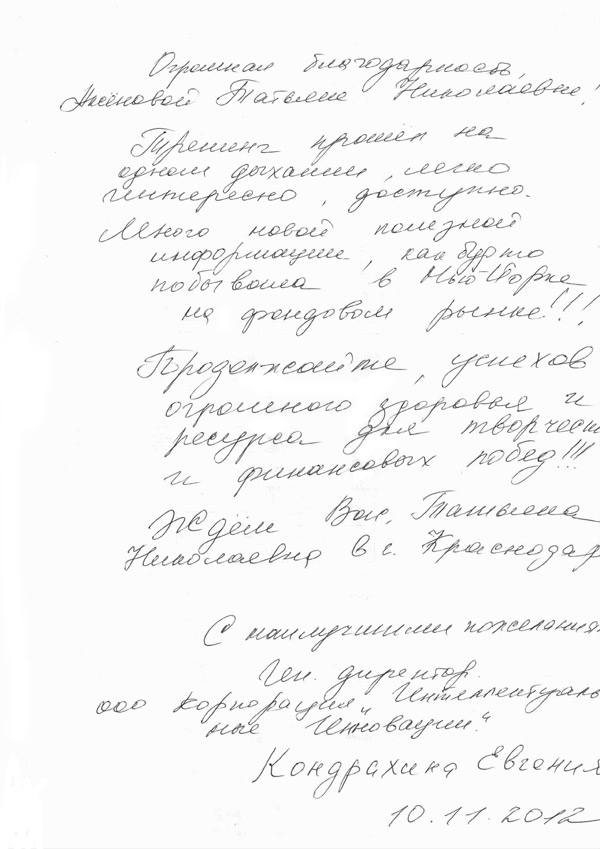 Огромная благодарность,
Аксёновой Татьяне Николаевне!
Тренинг прошёл на
одном дыхании, легко
интересно, доступно.
Много новой полезной
информации, как будто
побывала в Нью-Йорке
на фондовом рынке!!!
Продолжайте, успехов
огромного здоровья и
ресурса для творчески
и финансовых побед!!!
Ждём Вас, Татьяна
Николаевна в г. Краснодар
С наилучшими пожеланиям
Ген. директор.
ООО Корпорация "Интеллектуаль
ные Инновации".
Кондрахина Евгения
10.11.2012